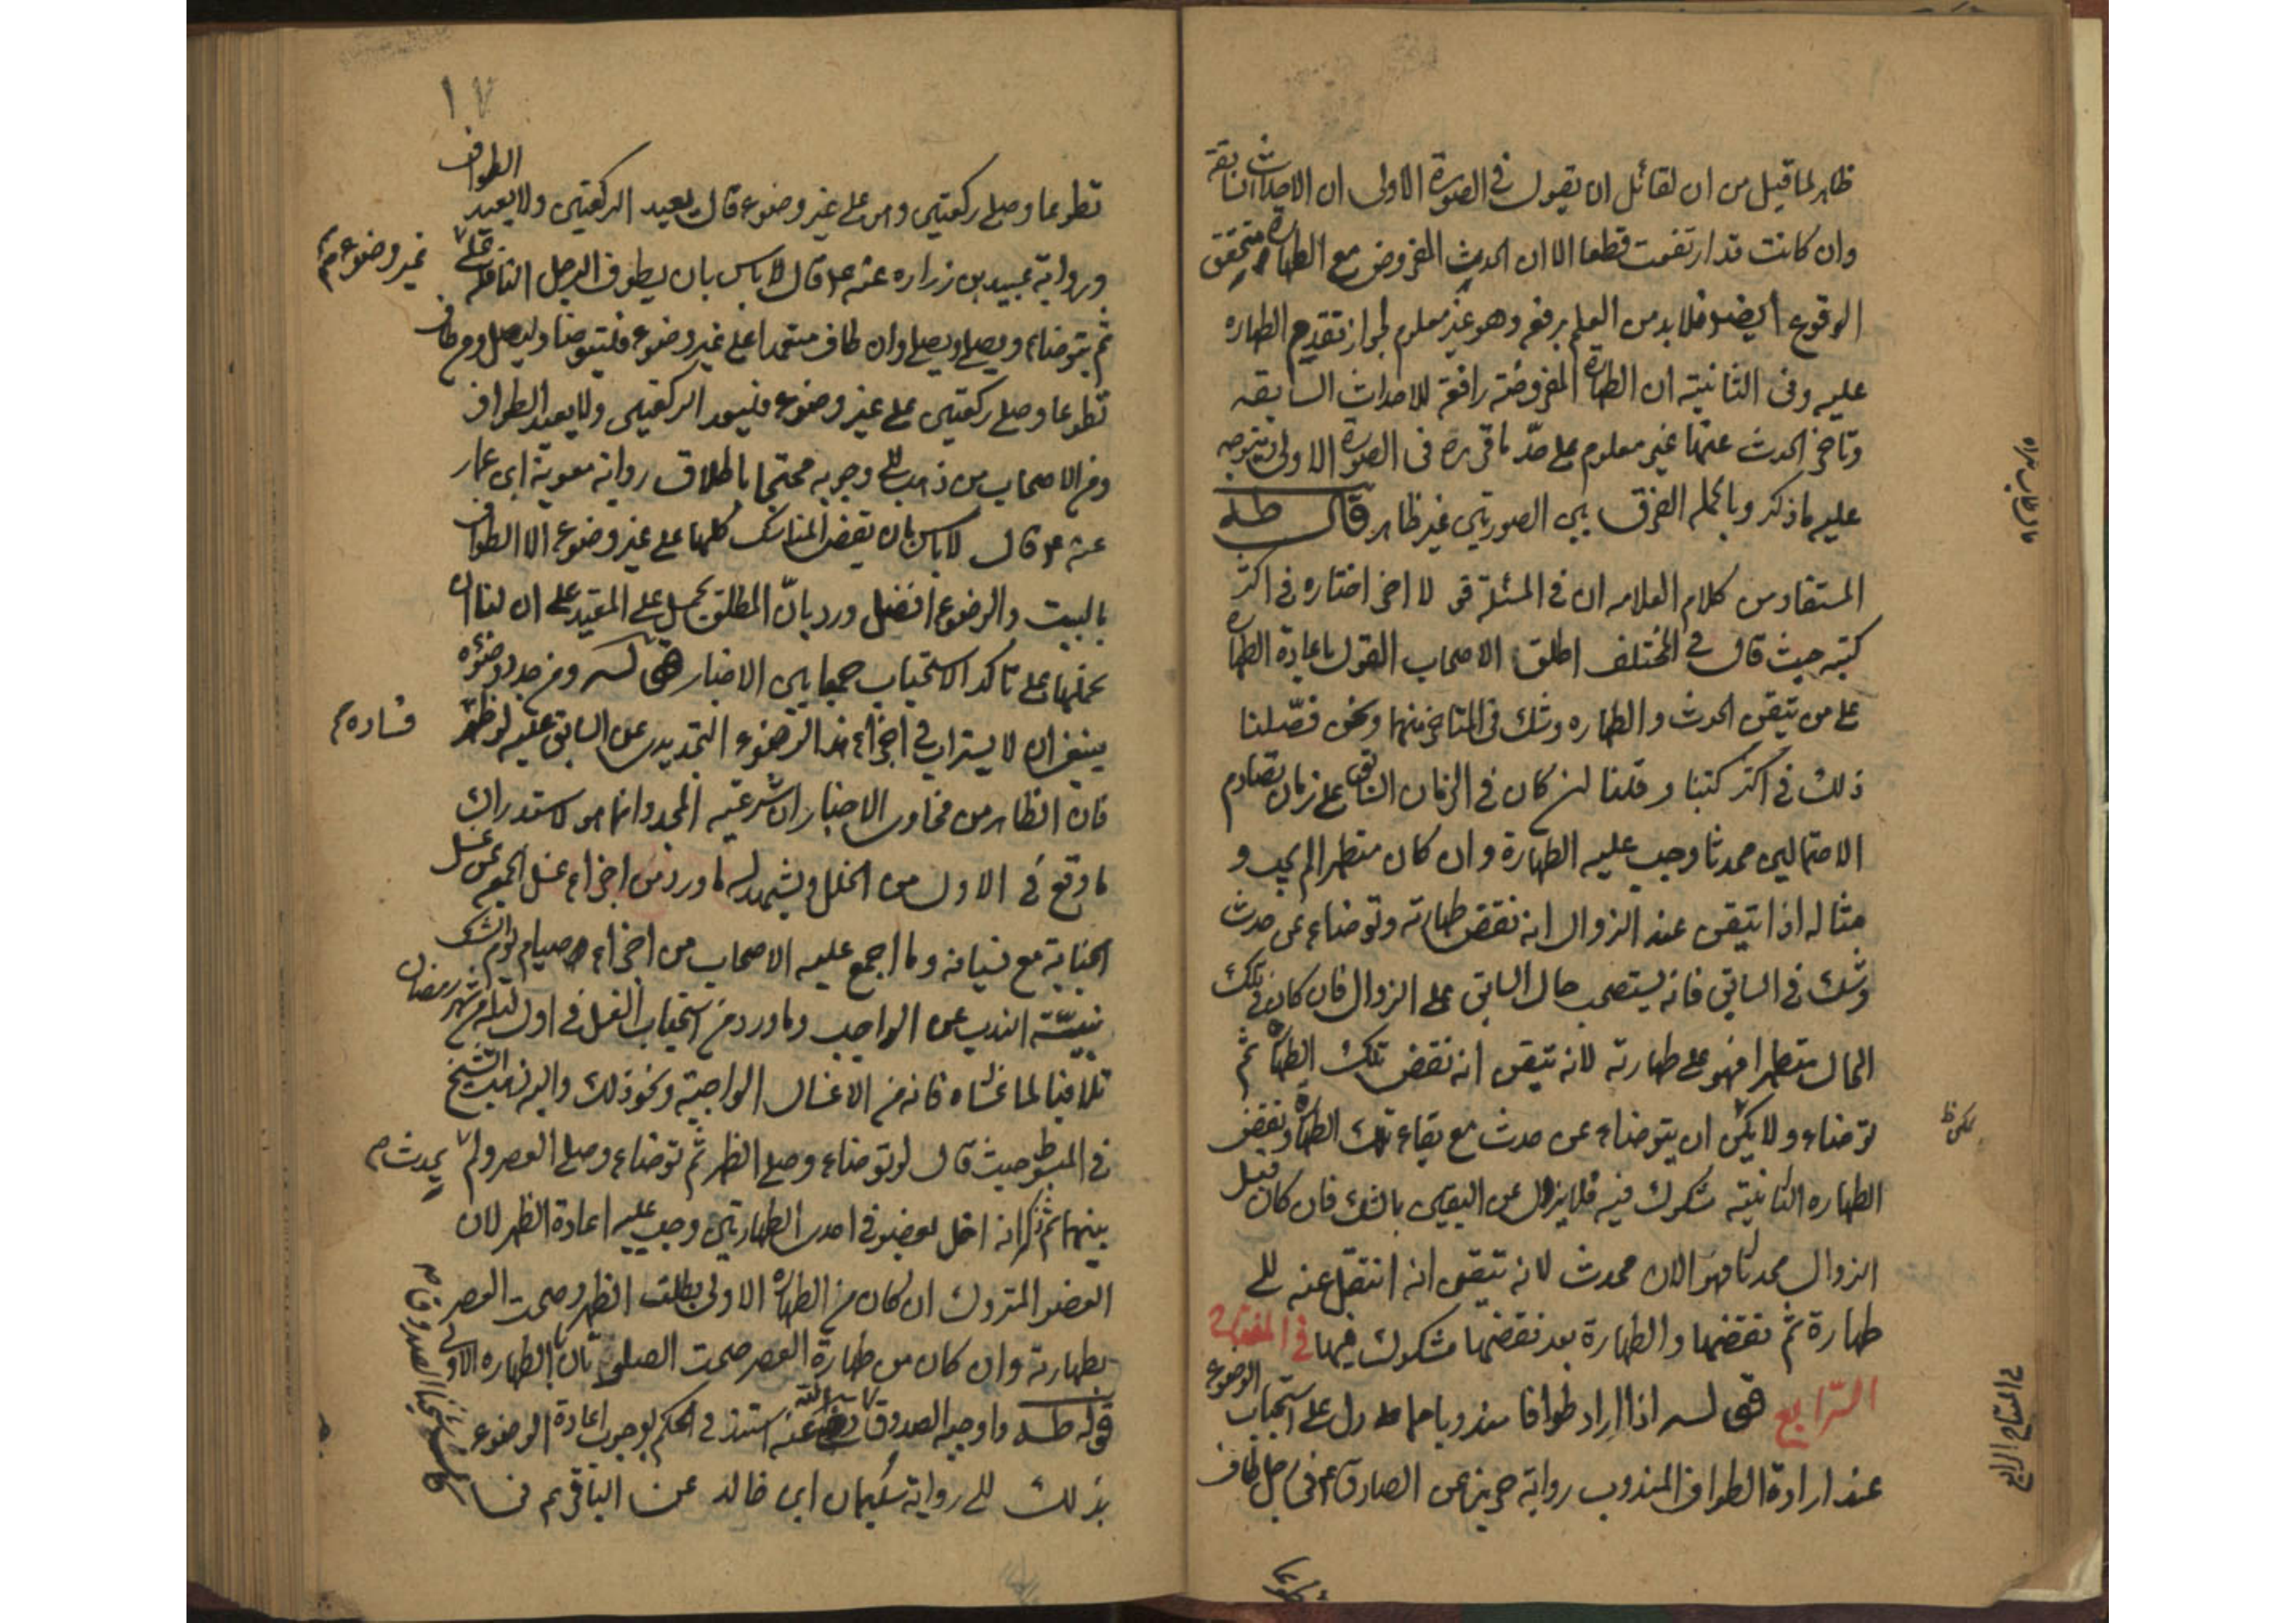 ظاهر لما قيل من ان لقائل ان يقول في الصورة الاولى ان الاحداث السابقة
وان كانت قد ارتفعت قطعا الا ان الحدث المفروض مع الطهارة متحقق
الوقوع ايضا فلا بد من العلم برفعه وهو غير معلوم لجواز تقديم الطهاره
عليه وفى الثانية ان الطهارة المفروضة رافعة للاحداث السابقه
وتاخر الحدث عنها غير معلوم على حدّ ما قرره فى الصورة الاولى فيتوجه
عليه ما ذكر وبالجمله الفرق بين الصورتين غير ظاهر قال طله
المستفاد من كلام العلامه ان في المسئلة قو لا اخر اختاره في اكثر
كتبه حيث قال في المختلف اطلق الاصحاب القول باعادة الطهارة
على من تيقن الحدث والطهاره وشك فى المتاخر منهما ونحن فصّلنا
ذلك في اكثر كتبنا وقلنا ان كان في الزمان السابق على زمان تصادم
الاحتمالين محدثا وجب عليه الطهارة وان كان متطهرا لم يجب و
مثاله اذا تيقن عند الزوال انه نقض طهارته وتوضاء عن حدث
وشك في السابق فانه يستصحب حال السابق على الزوال فان كان في تلك
الحال متطهرا فهو على طهارته لانه تيقن انه نقض تلك الطهارة ثم
توضاء ولا يمكن ان يتوضاء عن حدث مع بقاء تلك الطهارة ونقض
يمكن ظ
الطهاره الثانية مشكوك فيه فلا يزول عن اليقين بالشك فان كان قبل
الزوال محدثا فهو الان محدث لانه تيقن انه انتقل عنه الى
طهارة ثم نقضها والطهارة بعد نقضها مشكوك فيها في المفتاح
الرّابع قوله اذا اراد طوافا مندوبا دل على استحباب الوضوء
في المفتاح الرابع
عند ارادة الطواف المندوب رواية حريز عن الصادق ع في رجل طاف
١٧
تطوعا وصلى ركعتين وهو على غير وضوء قال يعيد الركعتين ولا يعيد الطواف
ورواية عبيد بن زراره عنه ع قال لا باس بان يطوف الرجل النافلة على
غير وضوء م
ثم يتوضاء ويصلى وان طاف متعمدا على غير وضوء فليتوضا وليصل ومن طاف
تطوعا وصلى ركعتين على غير وضوء فليعد الركعتين ولا يعيد الطواف
ومن الاصحاب من ذهب الى وجوبه محتجا باطلاق رواية معوية ابن عمار
عنه ع قال لا باس بان يقضى المناسك كلها على غير وضوء الا الطواف
بالبيت والوضوء افضل ورد بانّ المطلق يحمل على المقيد على ان لنا ان
نحملها على تاكد الاستحباب جمعا بين الاخبار قوله ومن جدد وضوئه
ينبغى ان لا يستراب في اجزاء هذا الوضوء التجديدى عن السابق عليه لو ظهر
فساده م
فان الظاهر من فحاوى الاخبار ان شرعية المجدد انما هو لاستدراك
ما وقع في الاول من الخلل ويشهد له ما ورد من اجزاء غسل الجمعه عن غسل
الجنابة مع نسيانه وما اجمع عليه الاصحاب من اجزاء صيام يوم الشك
بنيّة الندب عن الواجب وما ورد من استحباب الغسل في اول ليلة من شهر رمضان
تلافيا لما عساه فاته من الاغسال الواجبة ونحو ذلك واليه ذهب الشيخ
في المبسوط حيث قال لو توضاء وصلى الظهر ثم توضاء وصلى العصر ولم
يحدث م
بينهما ثم ذكر انه اخل بعضو في احدى الطهارتين وجب عليه اعادة الظهر لان
العضو المتروك ان كان من الطهارة الاولى بطلت الظهر وصحت العصر
بطهارته وان كان من طهارة العصر صحت الصلوتان بالطهاره الاولى
قوله طله واوجبه الصدوق استند في الحكم بوجوب اعادة الوضوء
بذلك الى رواية سليمان ابن خالد عن الباقر ع فيما